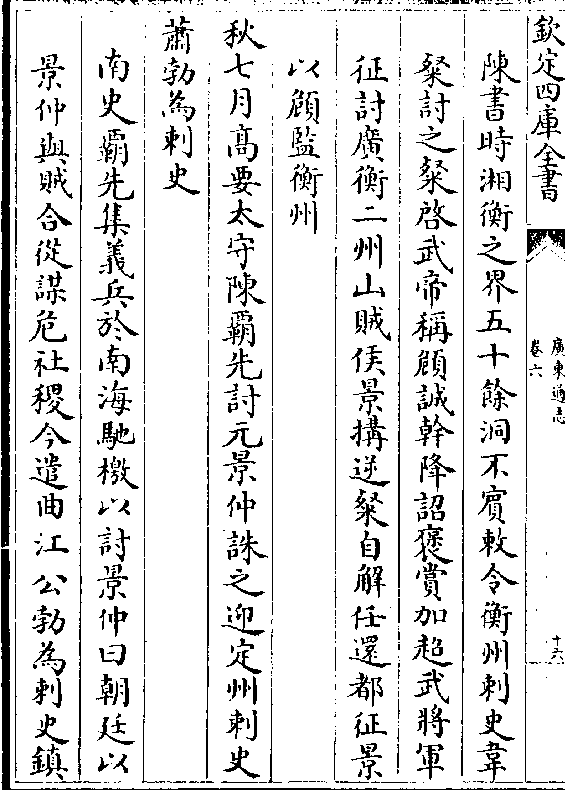 欽定四庫全書
廣東通志
卷六
十六
陳書時湘衡之界五十餘洞不賓敕令衡州刺史韋
粲討之粲啓武帝稱頠誠幹降詔褒賞加超武將軍
征討廣衡二州山賊侯景搆逆粲自解任還都征景
以頠監衡州
秋七月髙要太守陳霸先討元景仲誅之迎定州刺史
蕭勃為刺史
南史霸先集義兵於南海馳檄以討景仲曰朝廷以
景仲與賊合從謀危社稷今遣曲江公勃為刺史鎮